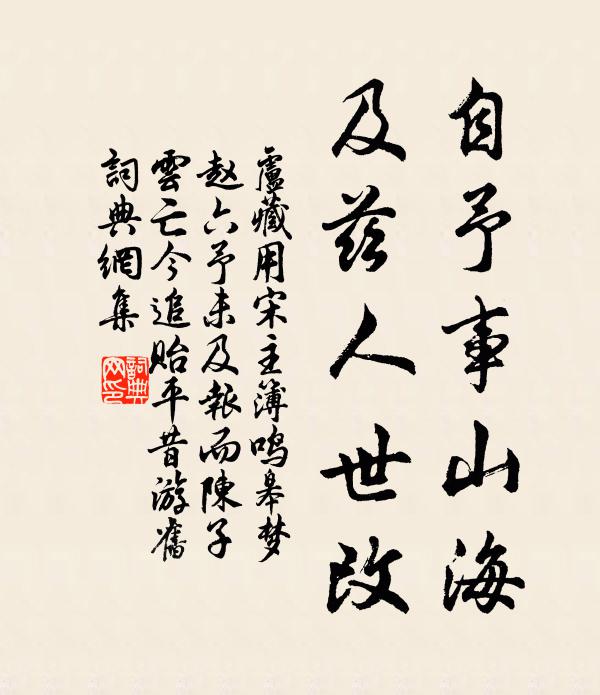 自予事山海
及兹人世改
盧藏用宋主簿鳴皋梦
赵六予未及報而陳子
雲亡今追貽平昔游舊
詞典網集
詞典
网印